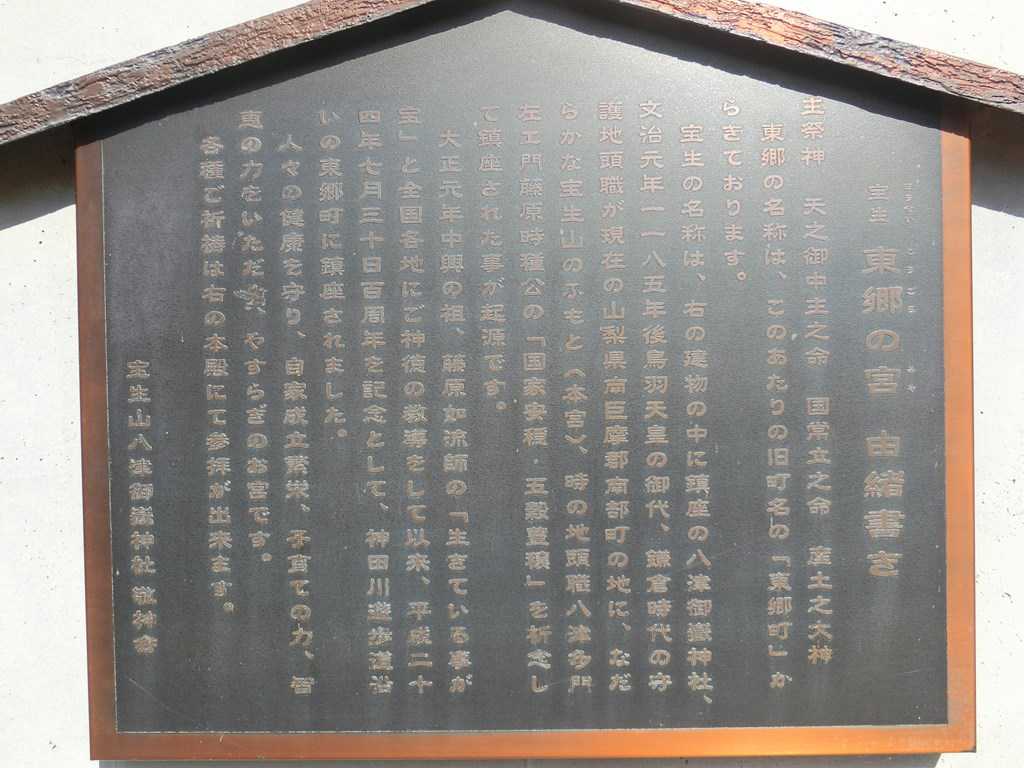 宝生 東郷の宮 由緒書き
主祭神 天之御中主之命 国常立之命 産土之大神
東郷の名称は、このあたりの旧町名の「東郷町」か
らきております。
宝生の名称は、右の建物の中に鎮座の八津御嶽神社、
文治元年一一八五年後鳥羽天皇の御代、鎌倉時代の守
護地頭職が現在の山梨県南巨摩郡南部町の地に、なだ
らかな宝生山のふもと(本宮)、時の地頭職八津多門
左エ門藤原時種公の「国家安穏・五穀豊穣」を祈念し
て鎮座された事が起源です。
大正元年中興の祖、藤原如流師の「生きている事が
宝」と全国各地にご神徳の教導をして以来、平成二十
四年七月三十日百周年を記念として、神田川遊歩道沿
いの東郷町に鎮座されました。
人々の健康を守り、自家成立繁栄、子育ての力、智
恵の力をいただき、やすらぎのお宮です。
各種ご祈祷は右の本殿にて参拝が出来ます。
宝生山八津御嶽神社 敬神会